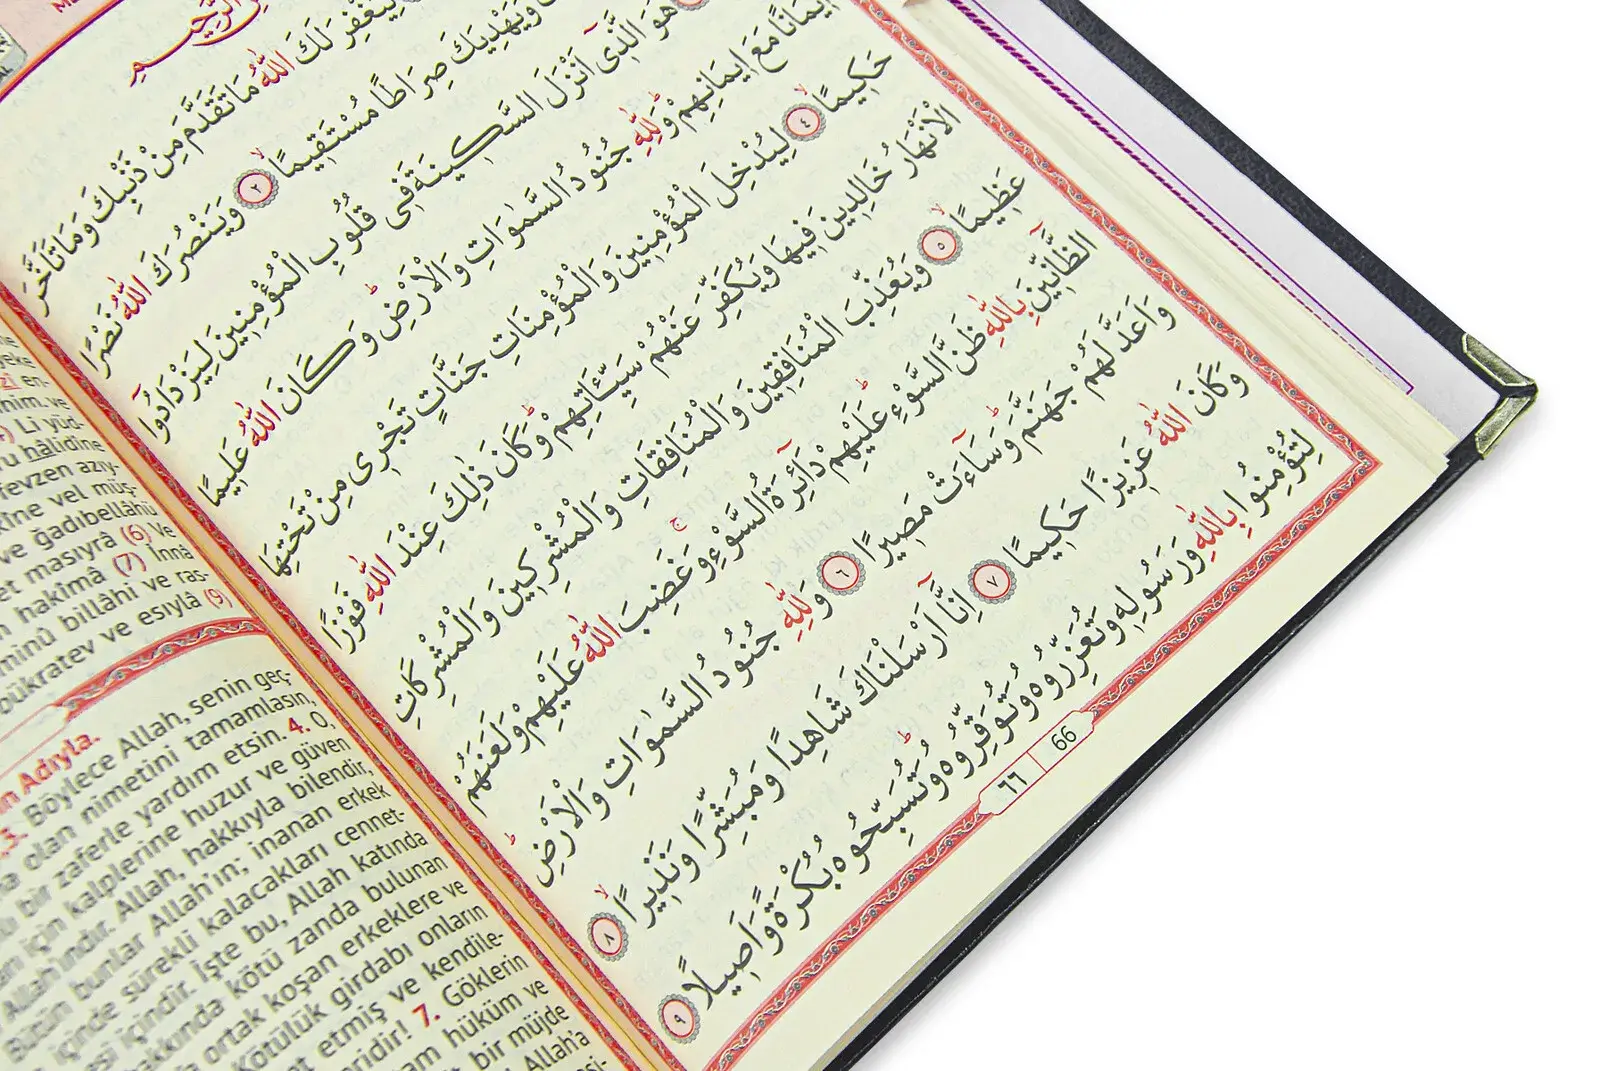 يَغْفِرَ لَكَ اللّٰهُ مَا تَقَدَّمَ مِنْ ذَنْبِكَ وَمَا تَاَخَّرَ
وَيَهْدِيَكَ صِرَاطًا مُسْتَقِيمًا ٢ وَيَنْصُرَكَ اللّٰهُ نَصْرًا
هُوَ الَّذِى اَنْزَلَ السَّكِينَةَ فِى قُلُوبِ الْمُؤْمِنِينَ لِيَزْدَادُوا
اِيمَانًا مَعَ اِيمَانِهِمْ وَلِلّٰهِ جُنُودُ السَّمٰوَاتِ وَالْاَرْضِ وَكَانَ اللّٰهُ عَلِيمًا
حَكِيمًا ٤ لِيُدْخِلَ الْمُؤْمِنِينَ وَالْمُؤْمِنَاتِ جَنَّاتٍ تَجْرِى مِنْ تَحْتِهَا
الْاَنْهَارُ خَالِدِينَ فِيهَا وَيُكَفِّرَ عَنْهُمْ سَيِّـَٔاتِهِمْ وَكَانَ ذٰلِكَ عِنْدَ اللّٰهِ فَوْزًا
عَظِيمًا ٥ وَيُعَذِّبَ الْمُنَافِقِينَ وَالْمُنَافِقَاتِ وَالْمُشْرِكِينَ وَالْمُشْرِكَاتِ
الظَّانِّينَ بِاللّٰهِ ظَنَّ السَّوْءِ عَلَيْهِمْ دَائِرَةُ السَّوْءِ وَغَضِبَ اللّٰهُ عَلَيْهِمْ وَلَعَنَهُمْ
وَاَعَدَّ لَهُمْ جَهَنَّمَ وَسَاءَتْ مَصِيرًا ٦ وَلِلّٰهِ جُنُودُ السَّمٰوَاتِ وَالْاَرْضِ
وَكَانَ اللّٰهُ عَزِيزًا حَكِيمًا ٧ اِنَّا اَرْسَلْنَاكَ شَاهِدًا وَمُبَشِّرًا وَنَذِيرًا ٨
لِتُؤْمِنُوا بِاللّٰهِ وَرَسُولِهِ وَتُعَزِّرُوهُ وَتُوَقِّرُوهُ وَتُسَبِّحُوهُ بُكْرَةً وَاَصِيلًا ٩
٦٦ 66
zî en-
him. ve
Li yüd-
hâlidîne
fevzen azıy-
kîne vel müş-
ve ğadıbellâhü
et masıyrâ (6) Ve
hakîmâ (7) İnnâ
minû billâhi ve ras-
bükratev ve esıylâ (9)
Adıyla.
3. Böylece Allah, senin geç-
olan nimetini tamamlasın,
bir zaferle yardım etsin. 4. O,
için kalplerine huzur ve güven
Allah'ındır. Allah, hakkıyla bilendir,
Bütün bunlar Allah'ın; inanan erkek
içinde sürekli kalacakları cennet-
içindir. İşte bu, Allah katında
hakkında kötü zanda bulunan
ortak koşan erkeklere ve
Kötülük girdabı onların
etmiş ve kendile-
7. Göklerin
hüküm ve
bir müjde
Allah'a